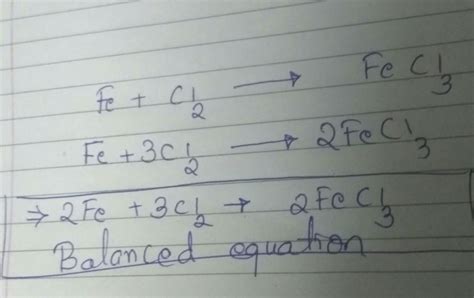 Fe + Cl₂ → FeCl₃
Fe + 3Cl₂ → 2FeCl₃
⇒ 2Fe + 3Cl₂ → 2FeCl₃
Balanced equation